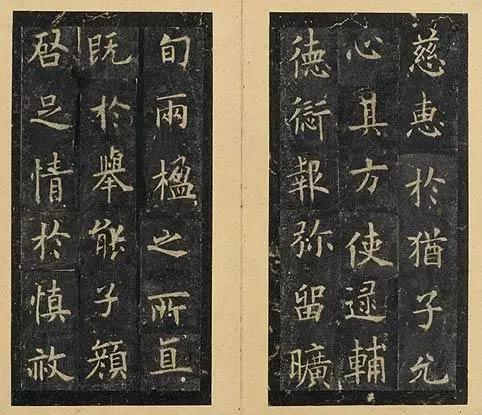 慈惠於猶子允
心其方使逯輔
徳愆報弥留曠
旬兩楹之所直
既於舉能子顔
启足情於慎赦